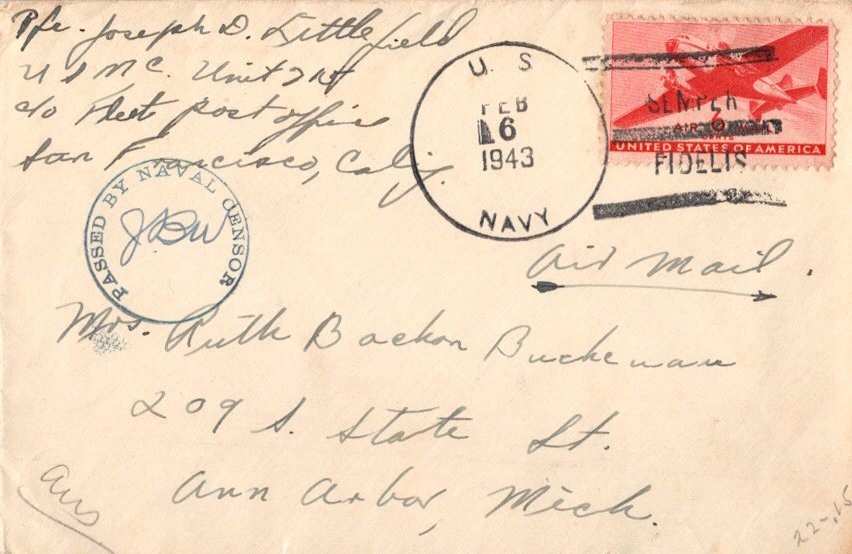 Pfc. Joseph D. Littlefield
U S M C. Unit
c/o Fleet post office
San Francisco, Calif.
U. S.
FEB
6
1943
NAVY
SEMPER
FIDELIS
AIR
6
UNITED STATES OF AMERICA
PASSED BY NAVAL CENSOR
JBW
Air Mail.
Mrs. Ruth Bacon Buchanan
209 S. State St.
Ann Arbor, Mich.
Ans
22-.15